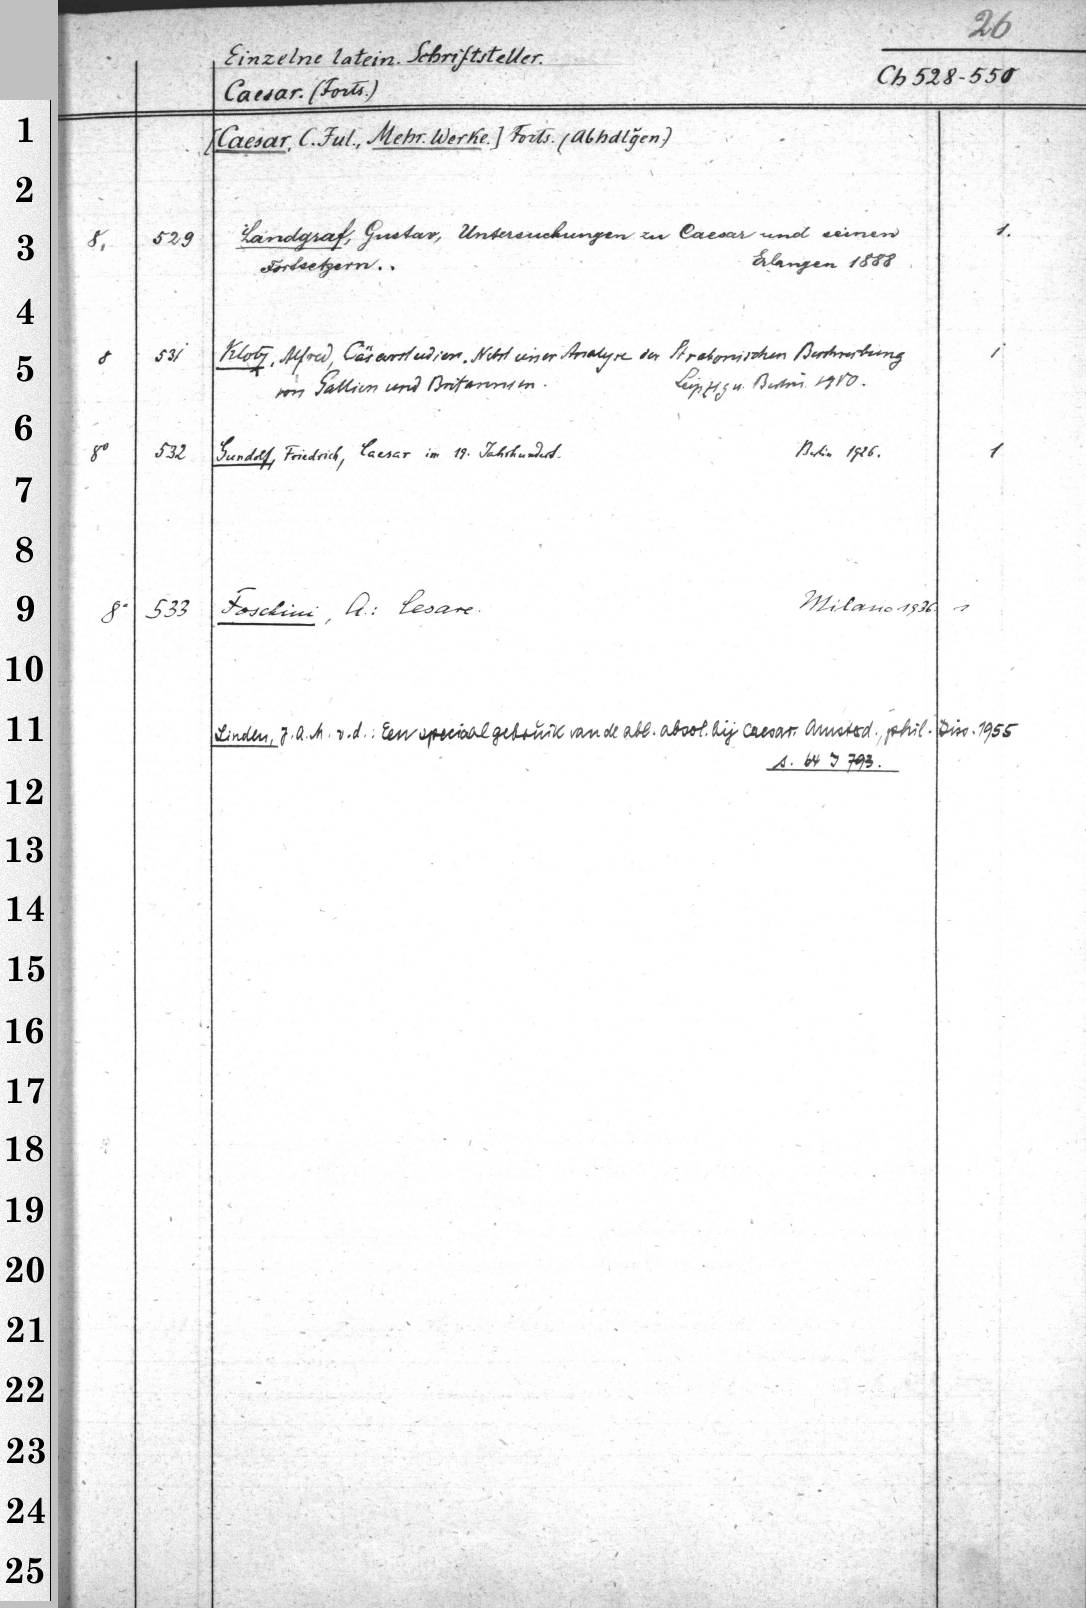 26
Einzelne latein. Schriftsteller.
Ch 528-550
Caesar. (Forts.)
1
[Caesar, C. Jul., Mehr. Werke.] Forts. (Abhdlgen)
2
3
8. 529 Landgraf, Gustav, Untersuchungen zu Caesar und seinen 1.
Fortsetzern.. Erlangen 1888
4
5
8 531 Klotz, Alfred, Cäsarstudien. Nebst einer Analyse der Strabonischen Beschreibung 1
von Gallien und Britannien. Leipzig u. Berlin 1910.
6
8° 532 Gundolf, Friedrich, Caesar im 19. Jahrhundert. Berlin 1926. 1
7
8
9
8° 533 Foschini, A.: Cesare. Milano 1936 1
10
11
Linden, J. A. M. v. d.: Een speciaal gebruik van de abl. absol. bij Caesar. Amsterd., phil. Diss. 1955
12
s. 64 J 793.
13
14
15
16
17
18
19
20
21
22
23
24
25